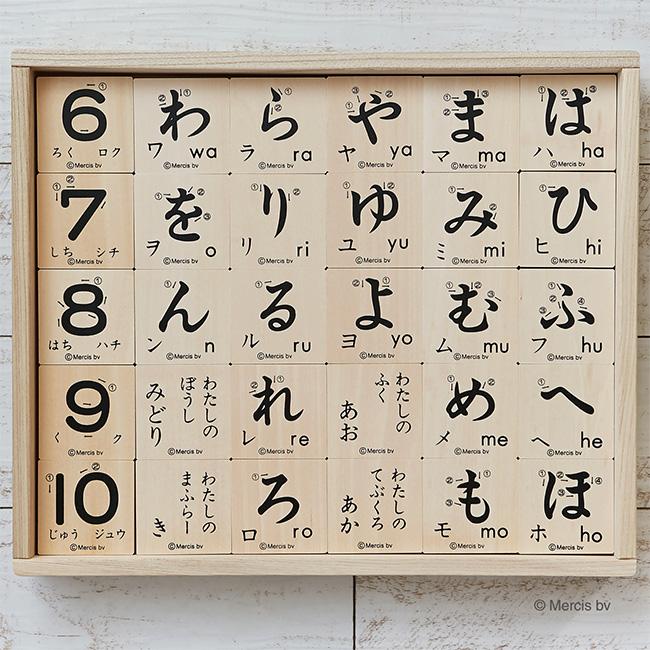 6
ろく ロク
©Mercis bv
わ
ワ wa
©Mercis bv
ら
ラ ra
©Mercis bv
や
ヤ ya
©Mercis bv
ま
マ ma
©Mercis bv
は
ハ ha
©Mercis bv
7
しち シチ
©Mercis bv
を
ヲ o
©Mercis bv
り
リ ri
©Mercis bv
ゆ
ユ yu
©Mercis bv
み
ミ mi
©Mercis bv
ひ
ヒ hi
©Mercis bv
8
はち ハチ
©Mercis bv
ん
ン n
©Mercis bv
る
ル ru
©Mercis bv
よ
ヨ yo
©Mercis bv
む
ム mu
©Mercis bv
ふ
フ hu
©Mercis bv
9
く ク
©Mercis bv
わたしの
ぼうし
みどり
©Mercis bv
れ
レ re
©Mercis bv
わたしの
ふく
あお
©Mercis bv
め
メ me
©Mercis bv
へ
ヘ he
©Mercis bv
10
じゅう ジュウ
©Mercis bv
わたしの
まふらー
き
©Mercis bv
ろ
ロ ro
©Mercis bv
わたしの
てぶくろ
あか
©Mercis bv
も
モ mo
©Mercis bv
ほ
ホ ho
©Mercis bv
© Mercis bv